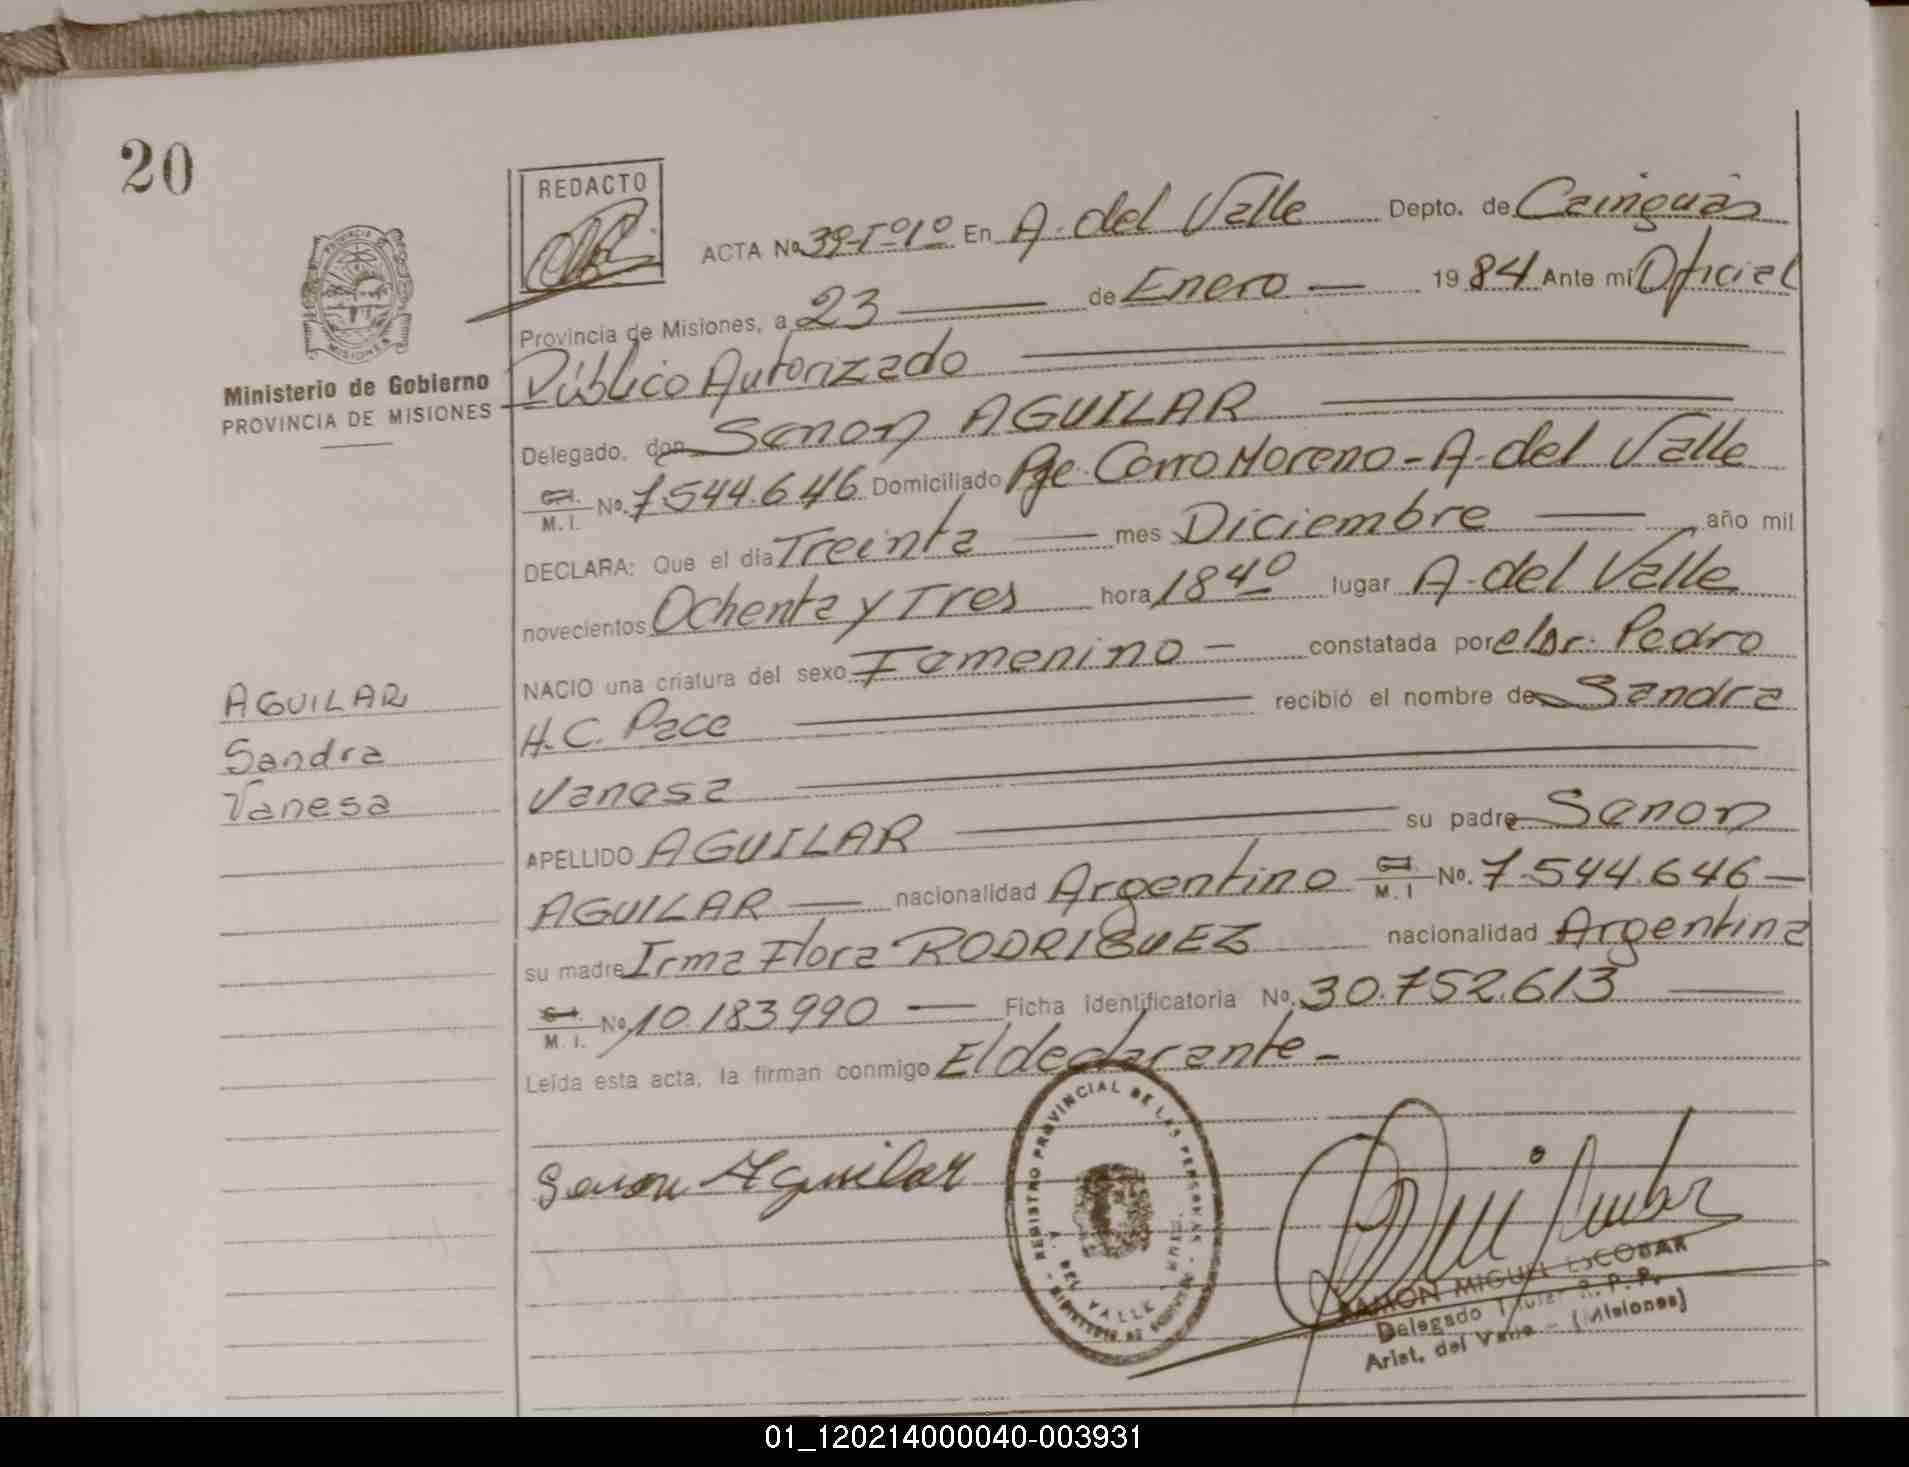 20
REDACTO
ACTA Nº 39-Tº1º En A. del Valle Depto. de Cainguás
Provincia de Misiones, a 23 de Enero 1984 Ante mi Oficial
Público Autorizado
Ministerio de Gobierno
PROVINCIA DE MISIONES
Delegado, don Senon AGUILAR
C.I. M. I. Nº. 7.544.646 Domiciliado Pje. Cerro Moreno - A. del Valle
DECLARA: Que el día Treinta mes Diciembre año mil
novecientos Ochenta y Tres hora 18 40 lugar A. del Valle
NACIO una criatura del sexo Femenino - constatada por el Dr. Pedro
H. C. Pace recibió el nombre de Sandra
Vanesa
AGUILAR
Sandra
Vanesa
APELLIDO AGUILAR su padre Senon
AGUILAR nacionalidad Argentino C.I. M. I Nº. 7.544.646
su madre Irma Flora RODRIGUEZ nacionalidad Argentina
C.I. M. I. Nº 10.183.990 Ficha identificatoria Nº. 30.752.613
Leída esta acta, la firman conmigo El declarante -
Senon Aguilar
REGISTRO PROVINCIAL DE LAS PERSONAS
A. DEL VALLE
MINISTERIO DE GOBIERNO
RAMON MIGUEL ESCOBAR
Delegado Titular R. P. P.
Arist. del Valle - (Misiones)
01_120214000040-003931